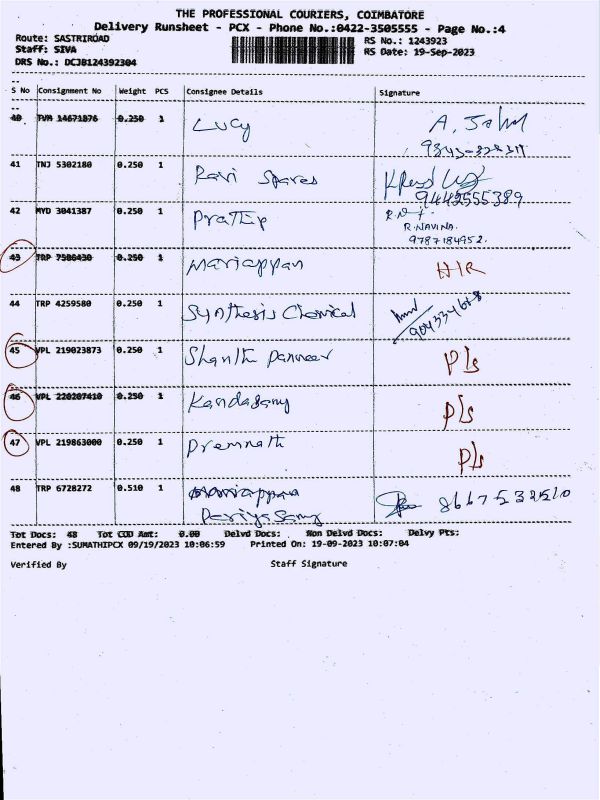 THE PROFESSIONAL COURIERS, COIMBATORE
Delivery Runsheet - PCX - Phone No.:0422-3505555 - Page No.:4
Route: SASTRIROAD RS No.: 1243923
Staff: SIVA RS Date: 19-Sep-2023
DRS No.: DCJB124392304
S No Consignment No Weight PCS Consignee Details Signature
40 TVM 14671876 0.250 1 Lucy
41 TNJ 5302180 0.250 1 Ravi Spares 9442555389
42 MYD 3041387 0.250 1 Prathip R.NAVINA. 9787184952.
43 TRP 7586430 0.250 1 Mariappan H/R
44 TRP 4259580 0.250 1 Synthesis Chemical
45 VPL 219023873 0.250 1 Shanthi Panneer P/s
46 VPL 220207410 0.250 1 Kandasamy P/s
47 VPL 219863000 0.250 1 Premnath P/s
48 TRP 6728272 0.510 1 Mariappan
Periyasamy 8667532510
Tot Docs: 48 Tot COD Amt: 0.00 Delvd Docs: Non Delvd Docs: Delvy Pts:
Entered By :SUMATHIPCX 09/19/2023 10:06:59 Printed On: 19-09-2023 10:07:04
Verified By Staff Signature